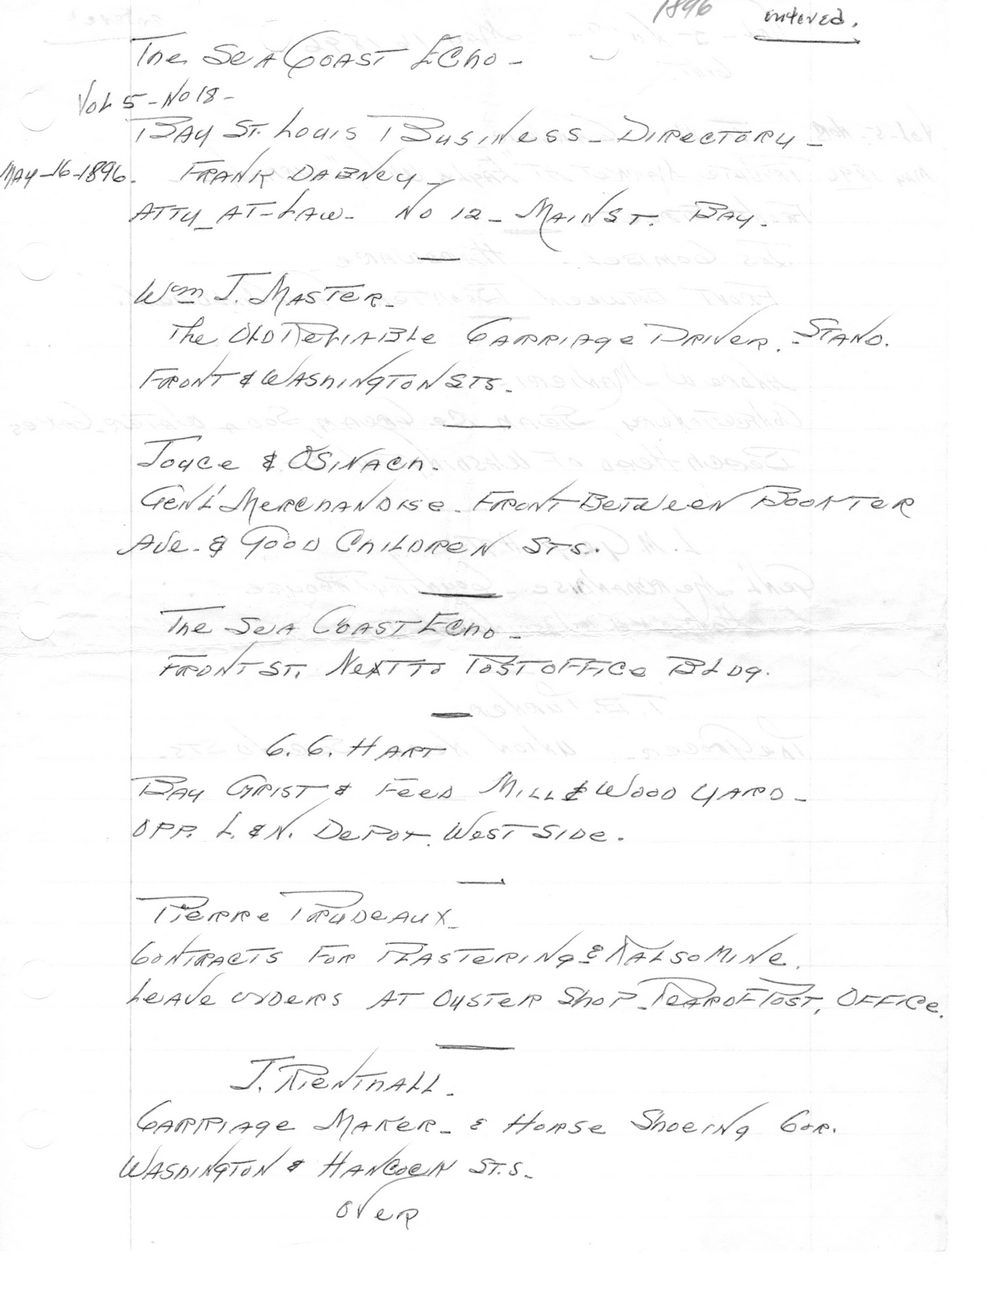 1896 entered.
The Sea Coast Echo -
Vol 5 - No 18 -
Bay St. Louis Business - Directory -
May - 16 - 1896. Frank Dabney -
Atty - At - Law - No 12 - Main St. Bay.
Wm J. Master -
The Old Reliable Carriage Driver. - Stand.
Front & Washington Sts -
Joyce & Osinach.
Gen'l Merchandise. Front Between Bookter
Ave. & Good Children Sts.
The Sea Coast Echo -
Front St. Next to Post office Bldg.
C. C. Hart
Bay Grist & Feed Mill & Wood Yard -
opp. L. & N. Depot. West Side.
Pierre Prudeaux -
Contracts for Plastering & Kalsomine.
Leave orders at Oyster Shop - Rear of Post, Office.
J. Rienthall.
Carriage Maker - & Horse Shoeing Cor.
Washington & Hancock St.s -
over